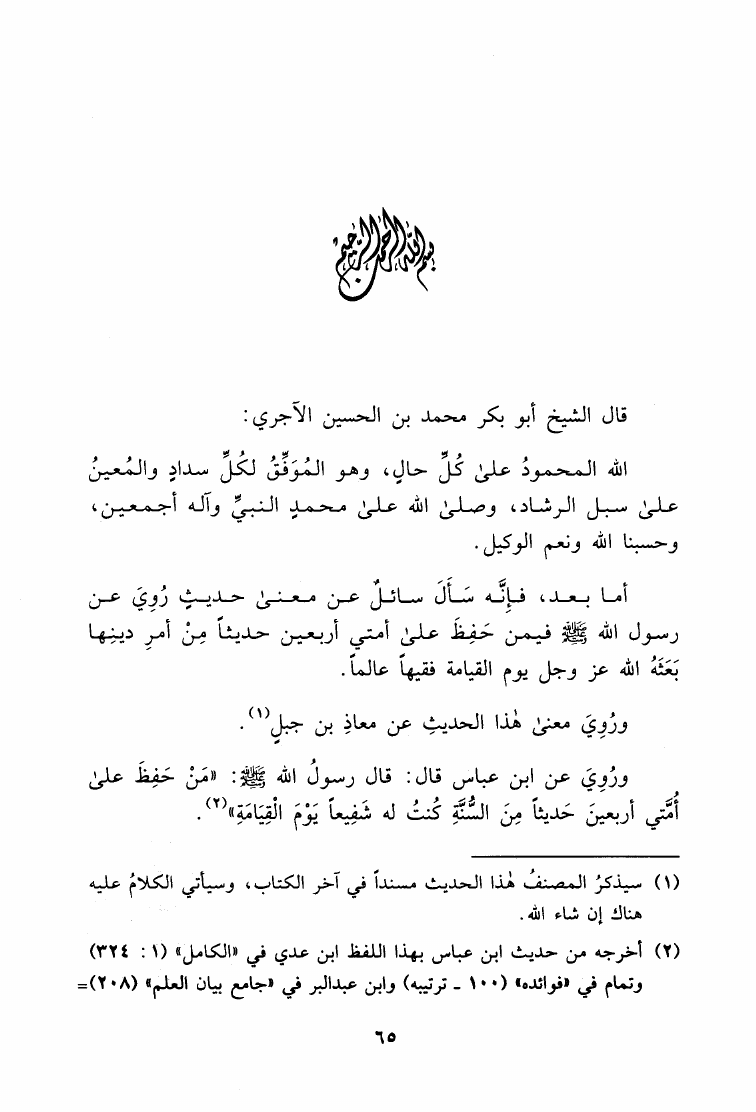 بسم الله الرحمن الرحيم
قال الشيخ أبو بكر محمد بن الحسين الآجري:
الله المحمودُ علىٰ كُلِّ حالٍ، وهو المُوَفِّقُ لكُلِّ سدادٍ والمُعينُ
علىٰ سبل الرشاد، وصلىٰ الله علىٰ محمدٍ النبيِّ وآله أجمعين،
وحسبنا الله ونعم الوكيل.
أما بعد، فإِنَّه سَأَلَ سائلٌ عن معنىٰ حديثٍ رُوِيَ عن
رسول الله ﷺ فيمن حَفِظَ علىٰ أمتي أربعين حديثاً مِنْ أمرِ دينِها
بَعَثَهُ الله عز وجل يوم القيامة فقيهاً عالماً.
ورُوِيَ معنىٰ هٰذا الحديثِ عن معاذِ بن جبلٍ(١).
ورُوِيَ عن ابن عباس قال: قال رسولُ الله ﷺ: «مَنْ حَفِظَ علىٰ
أُمَّتي أربعينَ حَديثاً مِنَ السُّنَّةِ كُنتُ له شَفِيعاً يَوْمَ الْقِيَامَةِ»(٢).
(١) سيذكرُ المصنفُ هٰذا الحديث مسنداً في آخر الكتاب، وسيأتي الكلامُ عليه
هناك إن شاء الله.
(٢) أخرجه من حديث ابن عباس بهذا اللفظ ابن عدي في «الكامل» (١ : ٣٢٤)
وتمام في «فوائده» (١٠٠ ـ ترتيبه) وابن عبدالبر في «جامع بيان العلم» (٢٠٨)=
٦٥